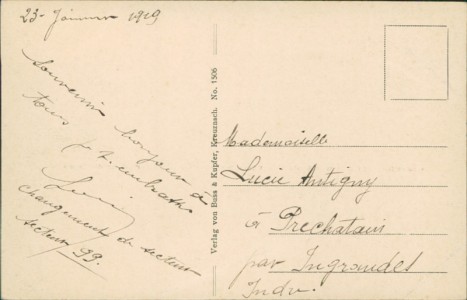 23 - Janvier 1919
Souvenir bonjour à
tous
changement de secteur
secteur 99.
Verlag von Buss & Kupfer, Kreuznach. No. 1506
Mademoiselle
Lucie Antigny
à Prechatain
par Ingrandes
Indre.